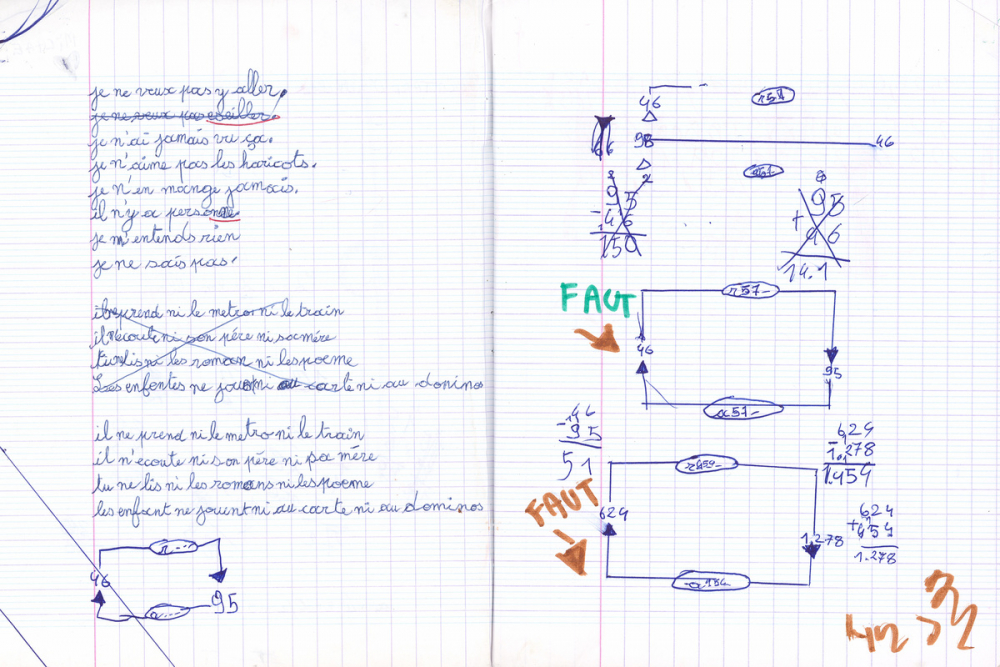 je ne veux pas y aller.
je ne veux pas eveiller.
je n'ai jamais vu ça.
je n'aime pas les haricots.
je n'en mange jamais.
il n'y a personne
je m'entends rien
je ne sais pas.
il prend ni le metro ni le train
il n'ecoute ni son pére ni sa mére
tu lis ni les roman ni les poeme
Les enfentes ne jouent ni au carte ni au dominos
il ne prend ni le metro ni le train
il n'ecoute ni son pére ni sa mére
tu ne lis ni les romans ni les poeme
les enfant ne jouent ni au carte ni au dominos
46
95
46
98
46
95
- 46
150
95
+ 46
14.1
FAUT
46
95
46
- 95
51
624
- 1.278
1.454
FAUT
624
1.278
624
+ 454
1.278